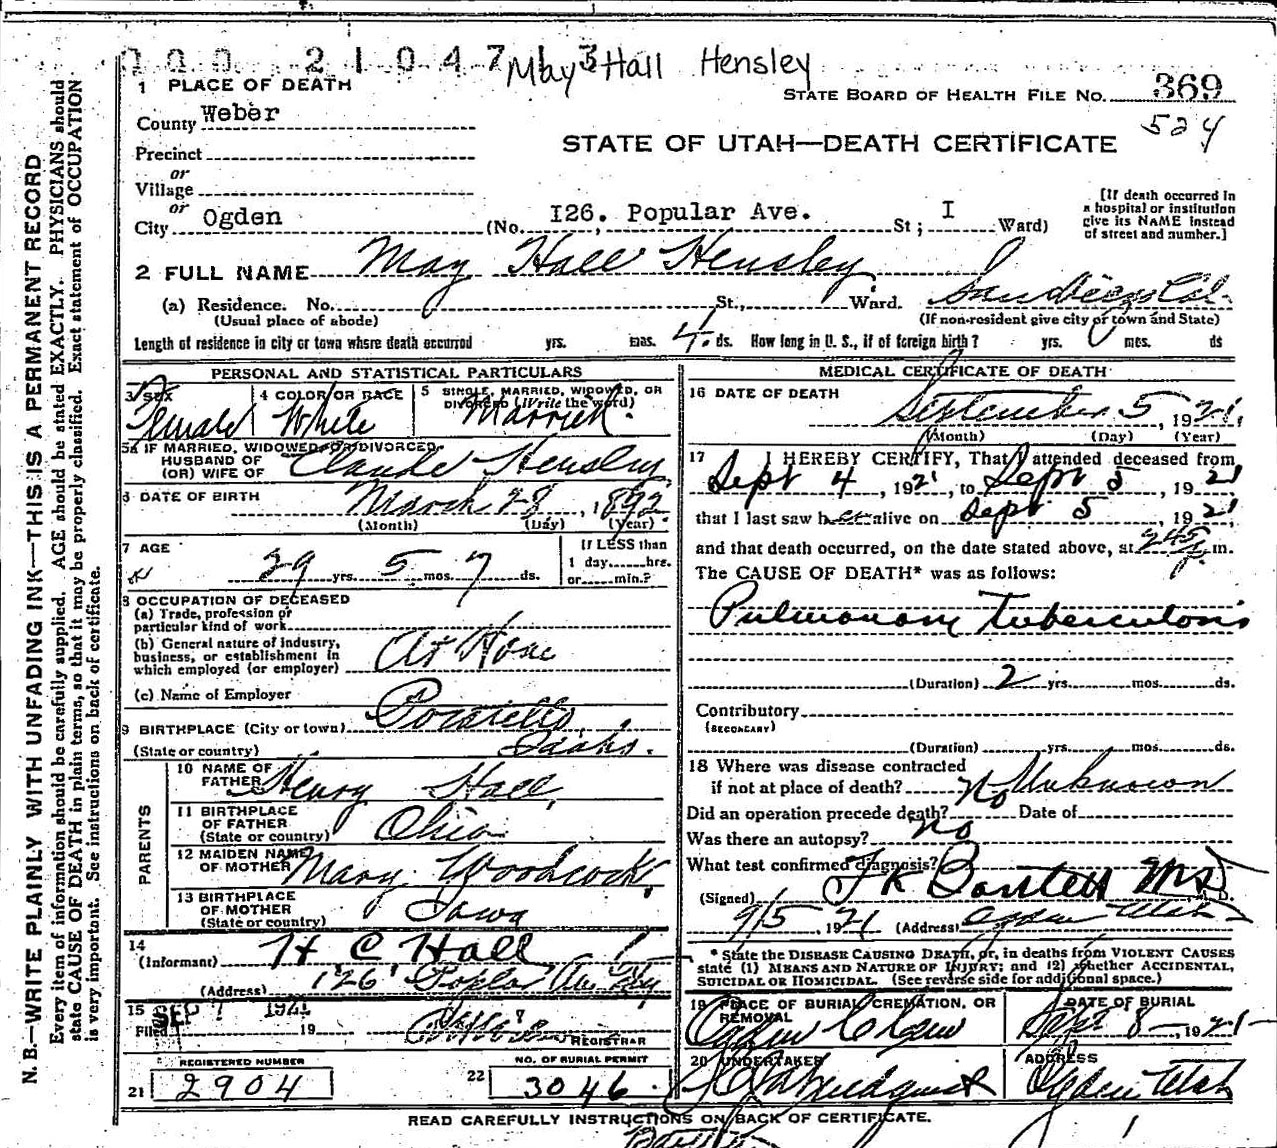 000 21047 May 3 Hall Hensley
1 PLACE OF DEATH
STATE BOARD OF HEALTH FILE NO. 369
County Weber
524
STATE OF UTAH—DEATH CERTIFICATE
Precinct
or
Village
or
City Ogden (No. I26. Popular Ave. St; I Ward)
[If death occurred in
a hospital or institution
give its NAME instead
of street and number.]
2 FULL NAME May Hall Hensley
(a) Residence. No. St., Ward. San Diego Cal.
(Usual place of abode) (If non-resident give city or town and State)
Length of residence in city or town where death occurred yrs. mos. 4 ds. How long in U. S., if of foreign birth? yrs. mos. ds
PERSONAL AND STATISTICAL PARTICULARS
3 SEX Female
4 COLOR OR RACE White
5 SINGLE, MARRIED, WIDOWED, OR
DIVORCED (Write the word) Married.
5a IF MARRIED, WIDOWED, OR DIVORCED
HUSBAND OF
(OR) WIFE OF Claude Hensley
6 DATE OF BIRTH March 28, 1892
(Month) (Day) (Year)
7 AGE
29 yrs. 5 mos. 7 ds.
If LESS than
1 day hrs.
or min.?
8 OCCUPATION OF DECEASED
(a) Trade, profession or
particular kind of work
(b) General nature of industry,
business, or establishment in
which employed (or employer) At Home
(c) Name of Employer
9 BIRTHPLACE (City or town) Pocatello
(State or country) Idaho.
PARENTS
10 NAME OF
FATHER Henry Hall
11 BIRTHPLACE
OF FATHER
(State or country) Ohio
12 MAIDEN NAME
OF MOTHER Mary Woodcock
13 BIRTHPLACE
OF MOTHER
(State or country) Iowa
14
(Informant) H C Hall
(Address) 126 Poplar Av.
15
Filed SEP 7 1921 19
REGISTRAR
REGISTERED NUMBER
21 2904
NO. OF BURIAL PERMIT
22 3046
MEDICAL CERTIFICATE OF DEATH
16 DATE OF DEATH
September 5, 1921
(Month) (Day) (Year)
17 I HEREBY CERTIFY, That I attended deceased from
Sept 4, 1921, to Sept 5, 1921
that I last saw her alive on Sept 5, 1921,
and that death occurred, on the date stated above, at 245 P m.
The CAUSE OF DEATH* was as follows:
Pulmonary tuberculosis
(Duration) 2 yrs. mos. ds.
Contributory
(SECONDARY)
(Duration) yrs. mos. ds.
18 Where was disease contracted
if not at place of death? Unknown
Did an operation precede death? No Date of
Was there an autopsy? No
What test confirmed diagnosis?
(Signed) F K Bartlett MD M. D.
9/5, 1921 (Address) Ogden Utah
* State the DISEASE CAUSING DEATH, or, in deaths from VIOLENT CAUSES
state (1) MEANS AND NATURE OF INJURY; and (2) whether ACCIDENTAL,
SUICIDAL OR HOMICIDAL. (See reverse side for additional space.)
19 PLACE OF BURIAL, CREMATION, OR
REMOVAL
Ogden
DATE OF BURIAL
Sept 8 1921
20 UNDERTAKER
ADDRESS
Ogden Utah
READ CAREFULLY INSTRUCTIONS ON BACK OF CERTIFICATE.
N. B.—WRITE PLAINLY WITH UNFADING INK—THIS IS A PERMANENT RECORD
Every item of information should be carefully supplied. AGE should be stated EXACTLY. PHYSICIANS should
state CAUSE OF DEATH in plain terms, so that it may be properly classified. Exact statement of OCCUPATION
is very important. See instructions on back of certificate.